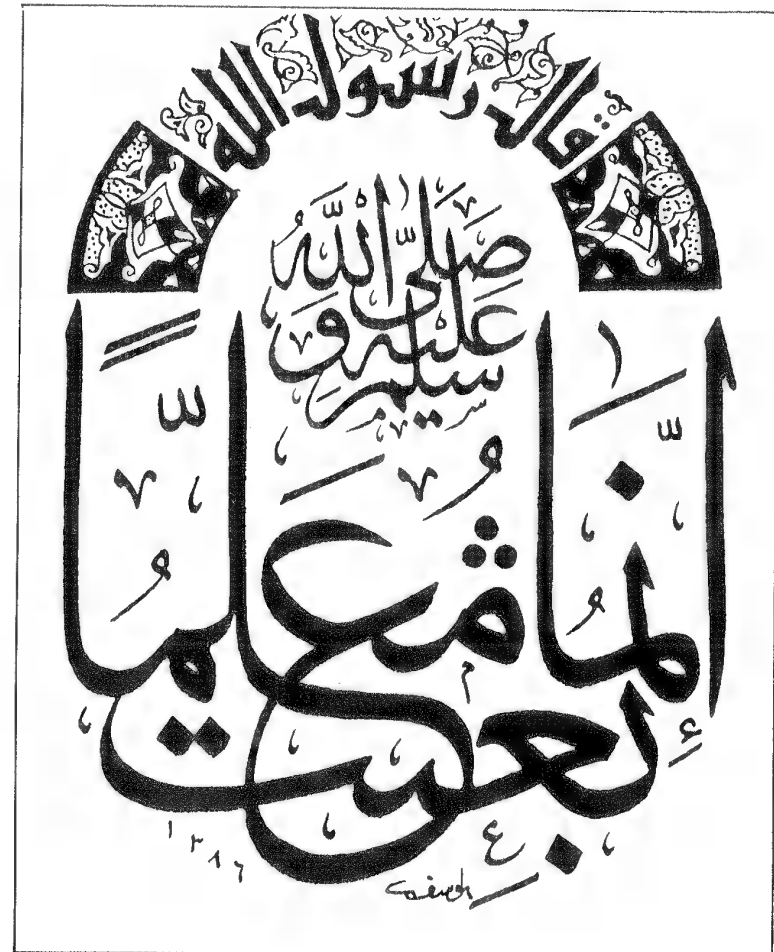 قال رسول الله
صَلَّى اللَّهُ
عَلَيْهِ وَ
سَلَّم
إِنَّمَا بُعِثْتُ مُعَلِّمًا
١٣٨٦